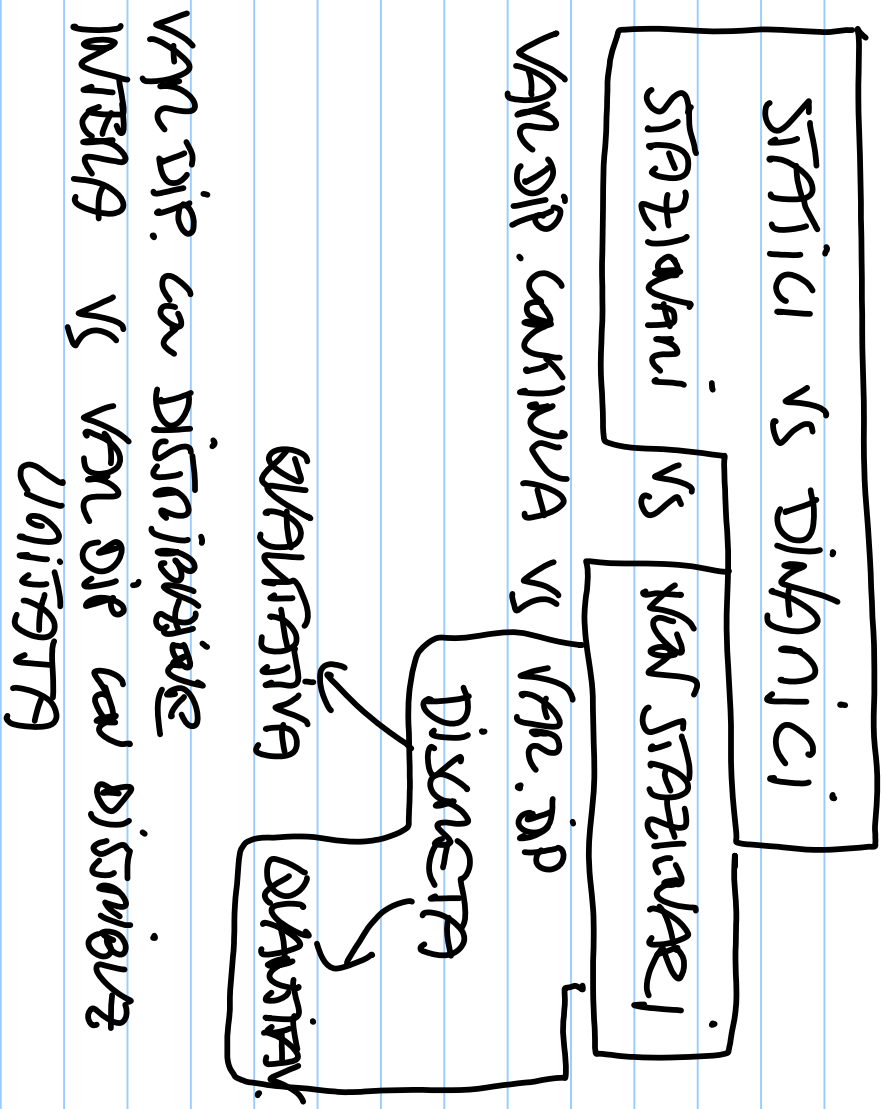 STATICI VS DINAMICI
STAZIONARI VS NON STAZIONARI
VAR. DIP. CONTINUA VS VAR. DIP
DISCRETA
QUALITATIVA QUANTITAV.
VAR DIP. CON DISTRIBUZIONE
INTERA VS VAR DIP CON DISTRIBUZ
LIMITATA